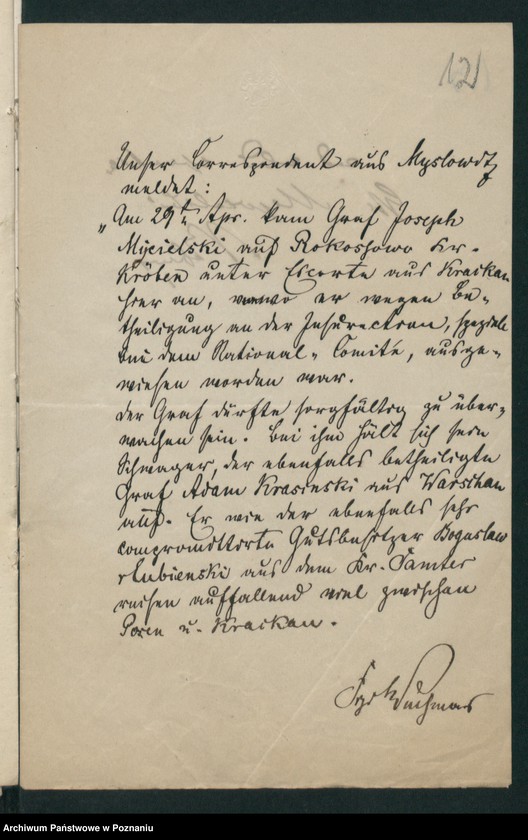 12
Unser Correspondent aus Myslowitz
meldet:
„Am 29t. Apr. kam Graf Joseph
Mycielski auf Rokossowo Kr.
Kröben unter Escorte aus Krackau
hier an, wo er wegen Be-
theiligung an der Insurection, speziell
bei dem National-Comité, ausge-
wiesen worden war.
Der Graf dürfte sorgfältig zu über-
wachen sein. Bei ihm hält sich sein
Schwager, der ebenfalls betheiligte
Graf Adam Krasinski aus Warschau
auf. Er wie der ebenfalls sehr
compromittirte Gutsbesitzer Boguslaw
Lubienski aus dem Kr. Samter
reisen auffallend viel zwischen
Posen u. Krackau.
Archiwum Państwowe w Poznaniu